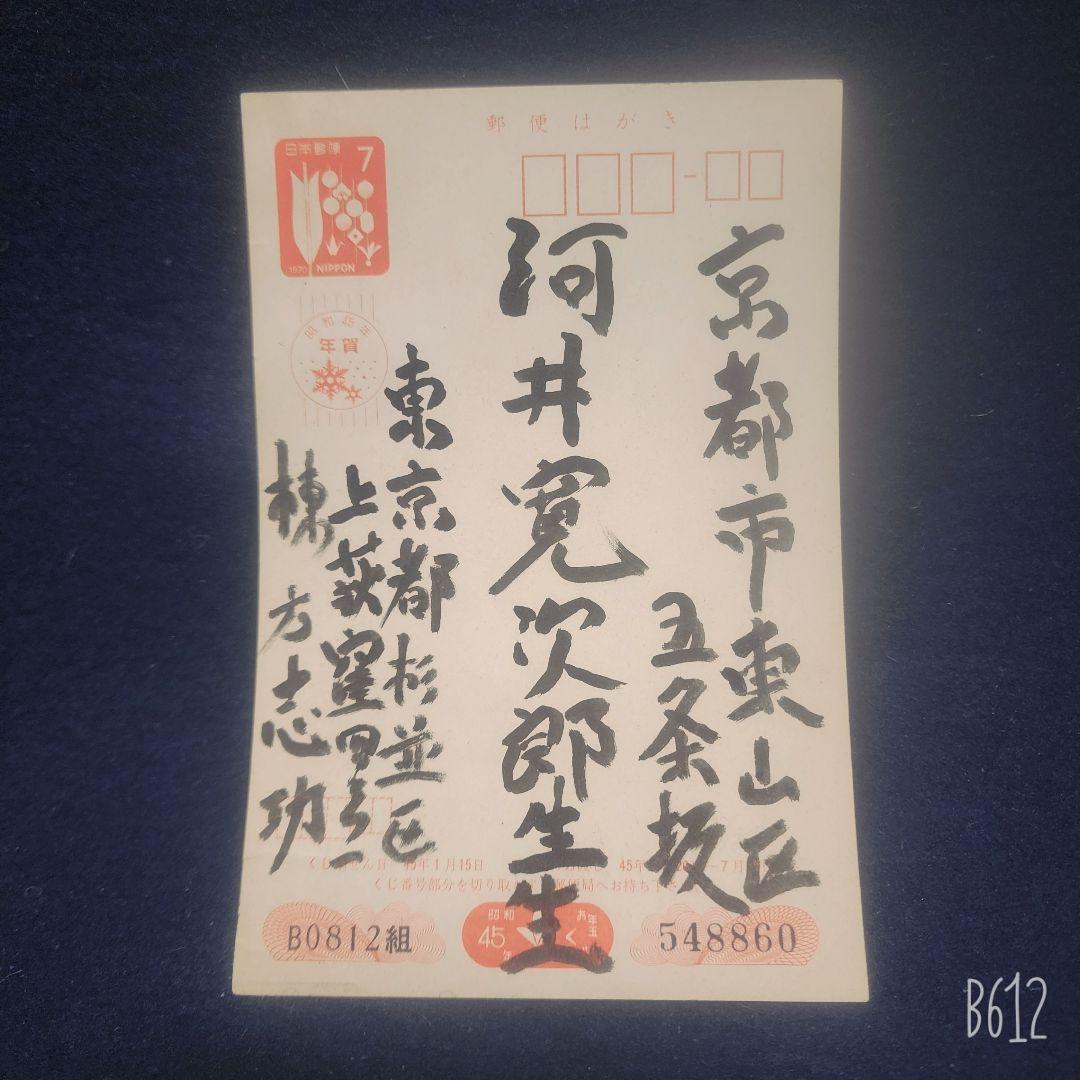 郵便はがき
日本郵便 7
1970 NIPPON
昭和45年
年賀
京都市東山区
五条坂
河井寛次郎生生
東京都杉並区
上荻窪
棟方志功
45年1月15日 45年
くじ番号部分を切り取 郵便局へお持ち下さ
B0812組
昭和
45
年
お年玉
548860
B612